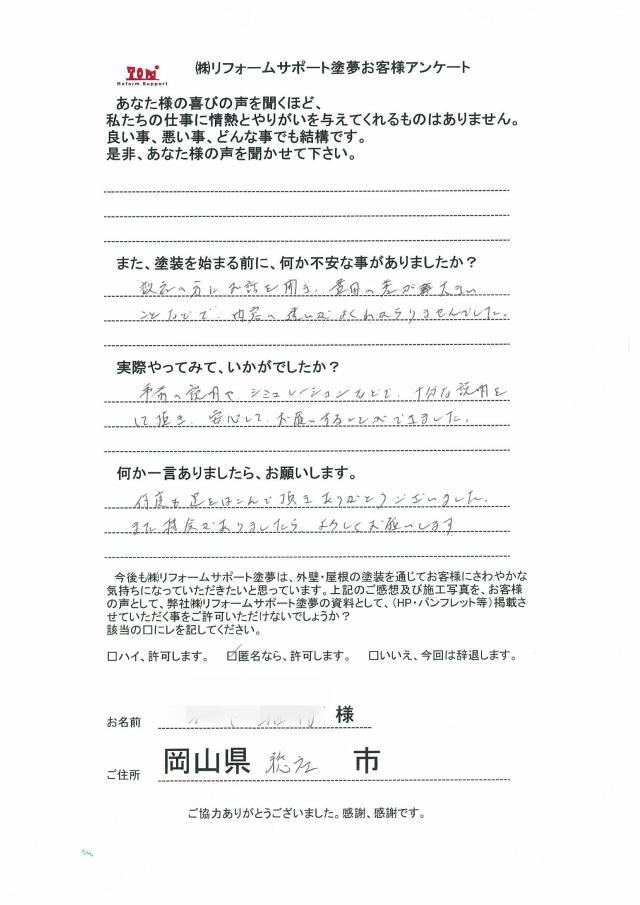 TOM
Reform Support
㈱リフォームサポート塗夢お客様アンケート
あなた様の喜びの声を聞くほど、
私たちの仕事に情熱とやりがいを与えてくれるものはありません。
良い事、悪い事、どんな事でも結構です。
是非、あなた様の声を聞かせて下さい。
また、塗装を始まる前に、何か不安な事がありましたか？
数社の方にお話を聞き、費用の差が大きい
ことなどで、内容の違いがよくわかりませんでした。
実際やってみて、いかがでしたか？
事前の説明や、シミュレーションなどで、十分な説明を
して頂き、安心して、お願いすることができました。
何か一言ありましたら、お願いします。
何度も足をはこんで頂きありがとうございました。
また機会がありましたら、よろしくお願いします
今後も㈱リフォームサポート塗夢は、外壁・屋根の塗装を通じてお客様にさわやかな
気持ちになっていただきたいと思っています。上記のご感想及び施工写真を、お客様
の声として、弊社㈱リフォームサポート塗夢の資料として、（HP・パンフレット等）掲載さ
せていただく事をご許可いただけないでしょうか？
該当の□にレを記してください。
□ハイ、許可します。 ☑匿名なら、許可します。 □いいえ、今回は辞退します。
お名前 様
ご住所 岡山県 総社 市
ご協力ありがとうございました。感謝、感謝です。